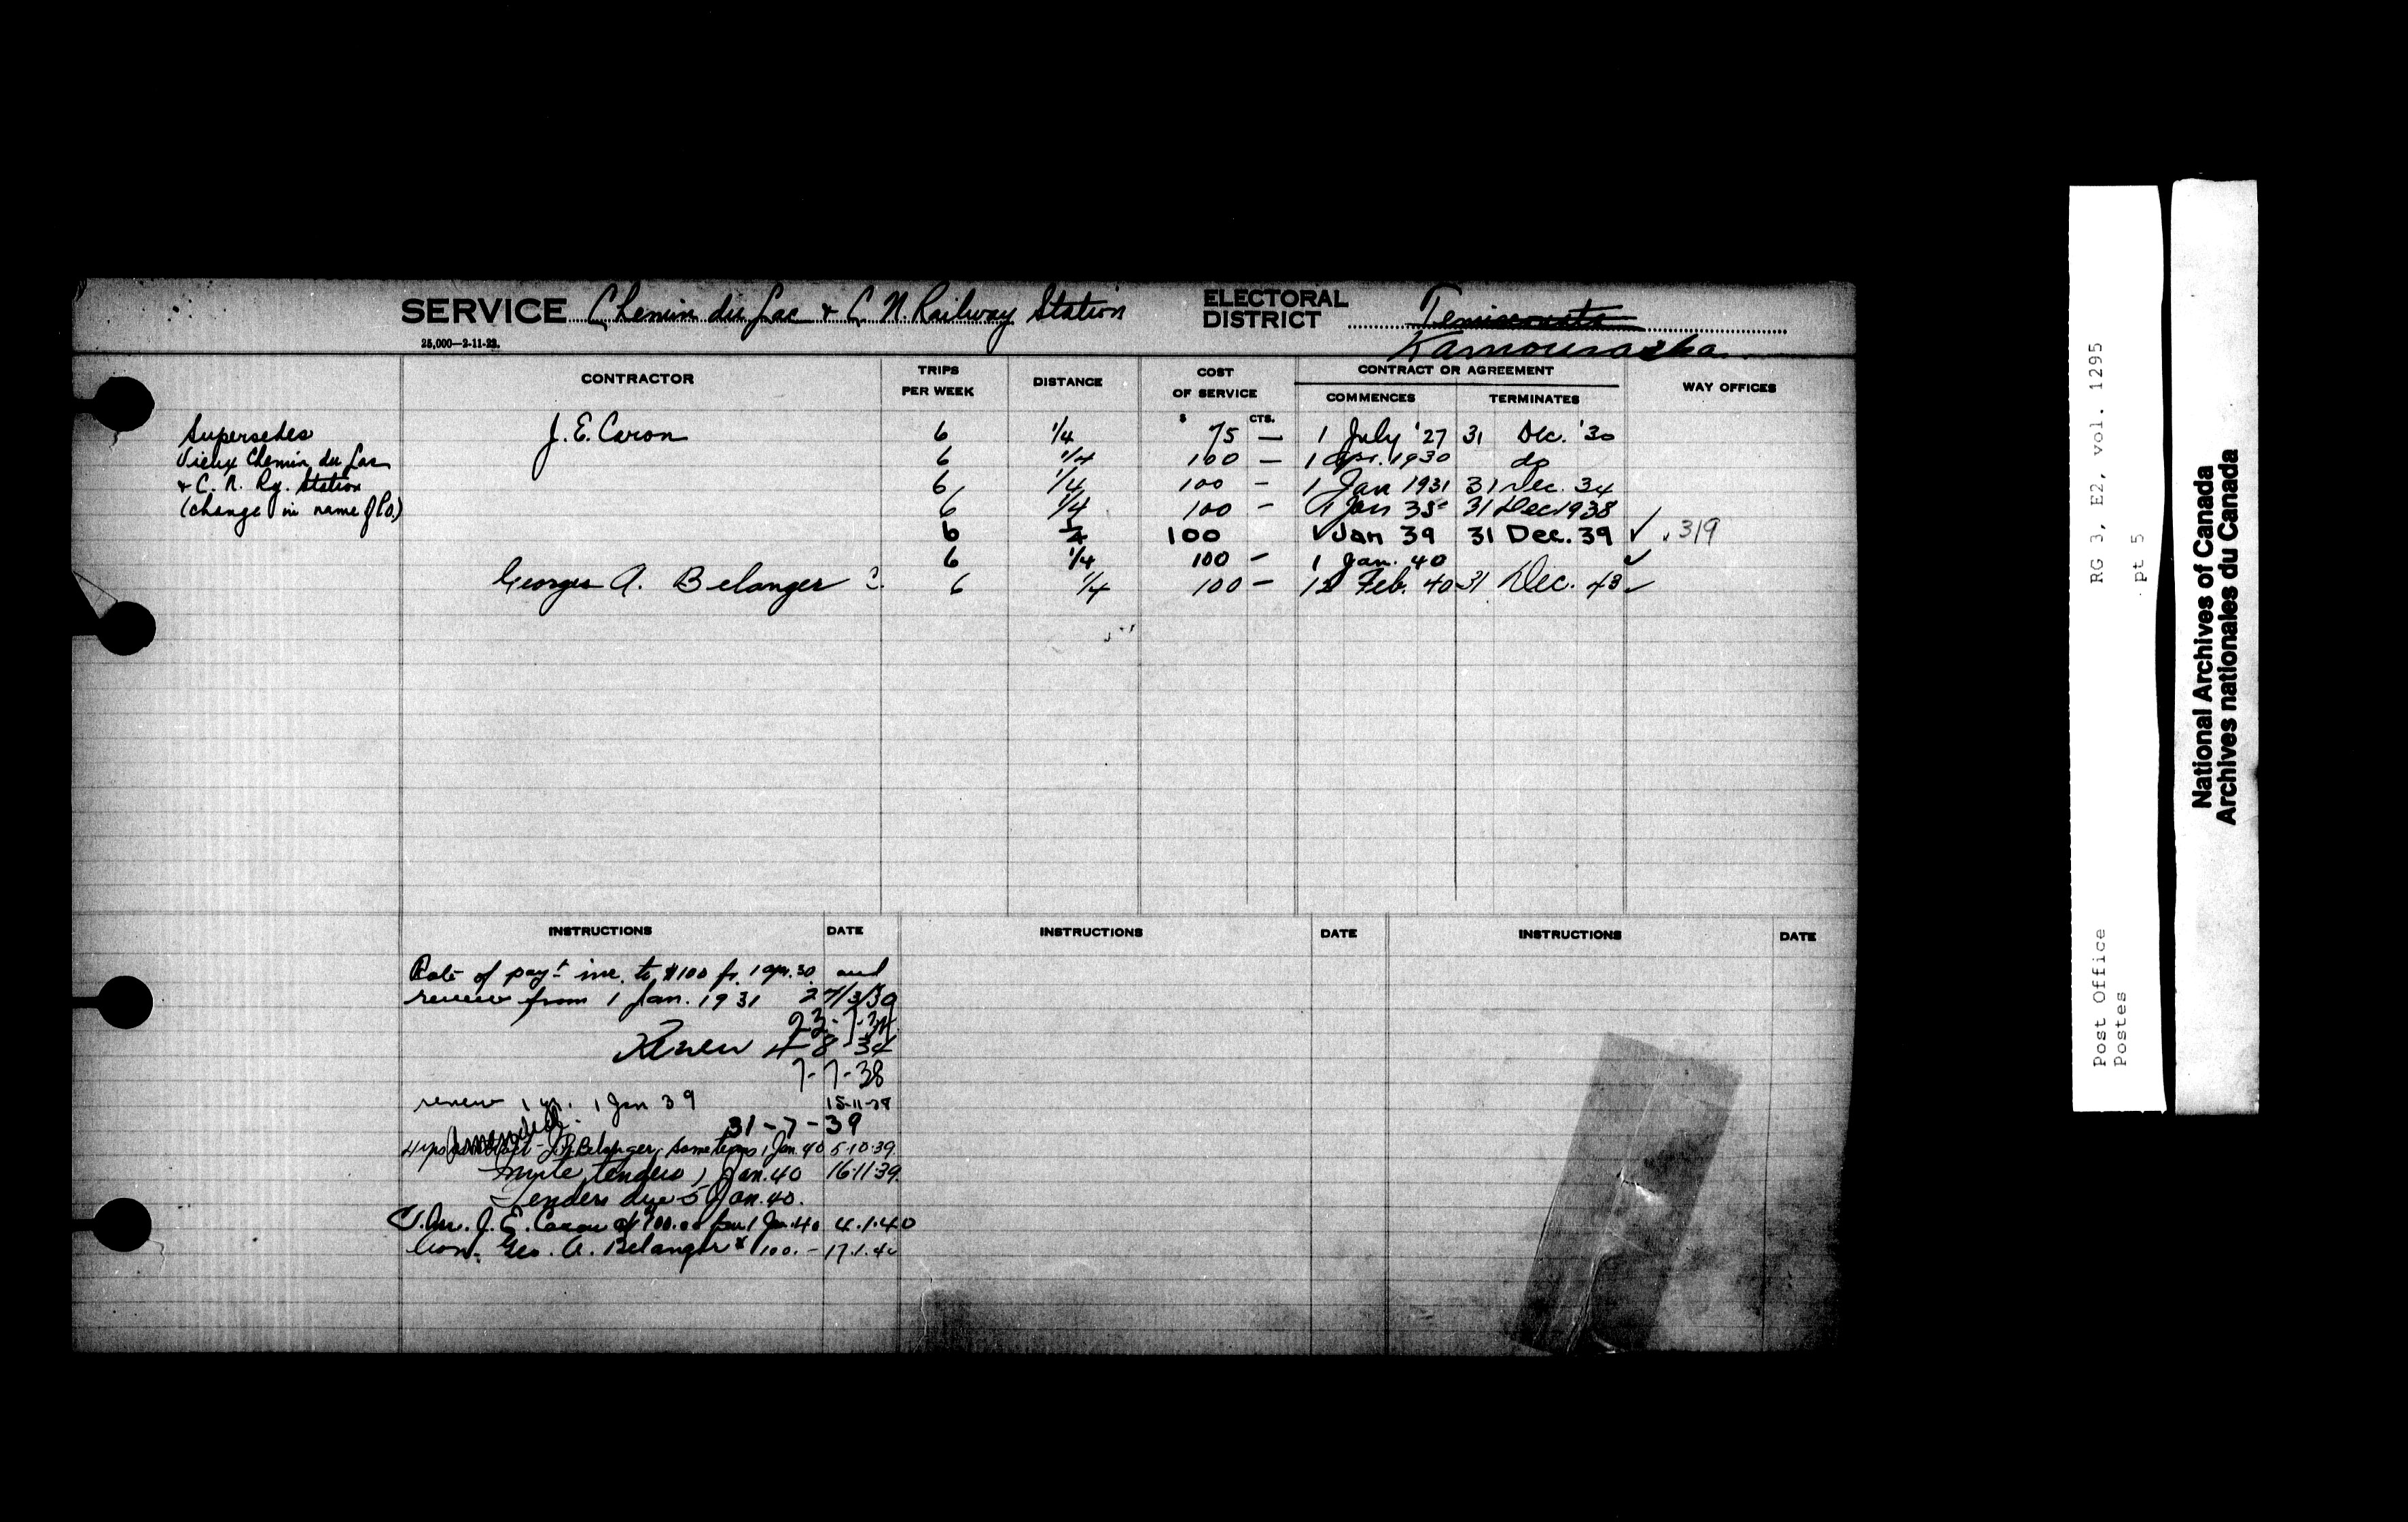 SERVICE Chemin du Lac & C. N. Railway Station
ELECTORAL DISTRICT Temiscouata
Kamouraska
25,000—2-11-23.
CONTRACTOR TRIPS PER WEEK DISTANCE COST OF SERVICE CONTRACT OR AGREEMENT WAY OFFICES
COMMENCES TERMINATES
$ CTS.
Supersedes J. E. Caron 6 1/4 75 — 1 July '27 31 Dec. '30
Vieux Chemin du Lac 6 1/4 100 — 1 Apr. 1930 do
& C. N. Ry. Station 6 1/4 100 - 1 Jan 1931 31 Dec. 34
(change in name of P.O.) 6 1/4 100 - 1 Jan 35 31 Dec 1938
6 1/4 100 1 Jan 39 31 Dec. 39 ✓ 319
6 1/4 100 - 1 Jan. 40 ✓
Georges A. Belanger 6 1/4 100 - 12 Feb. 40 31 Dec. 43 ✓
INSTRUCTIONS DATE INSTRUCTIONS DATE INSTRUCTIONS DATE
Rate of payt. inc. to $100 fr. 1 Apr. 30 and
renew from 1 Jan. 1931 27/3/30
23-7-34
Renew 4-8-34
7-7-38
renew 1 yr. 1 Jan 39 15-11-38
31-7-39
Belanger, same terms 1 Jan. 40 5.10.39.
Invite tenders 1 Jan. 40 16.11.39.
Tenders due 5 Jan. 40.
J. E. Caron 100.00 1 Jan. 40 4.1.40
Con. Geo. A. Belanger 100.- 17.1.40
RG 3, E2, vol. 1295
pt 5
Post Office
Postes
National Archives of Canada
Archives nationales du Canada